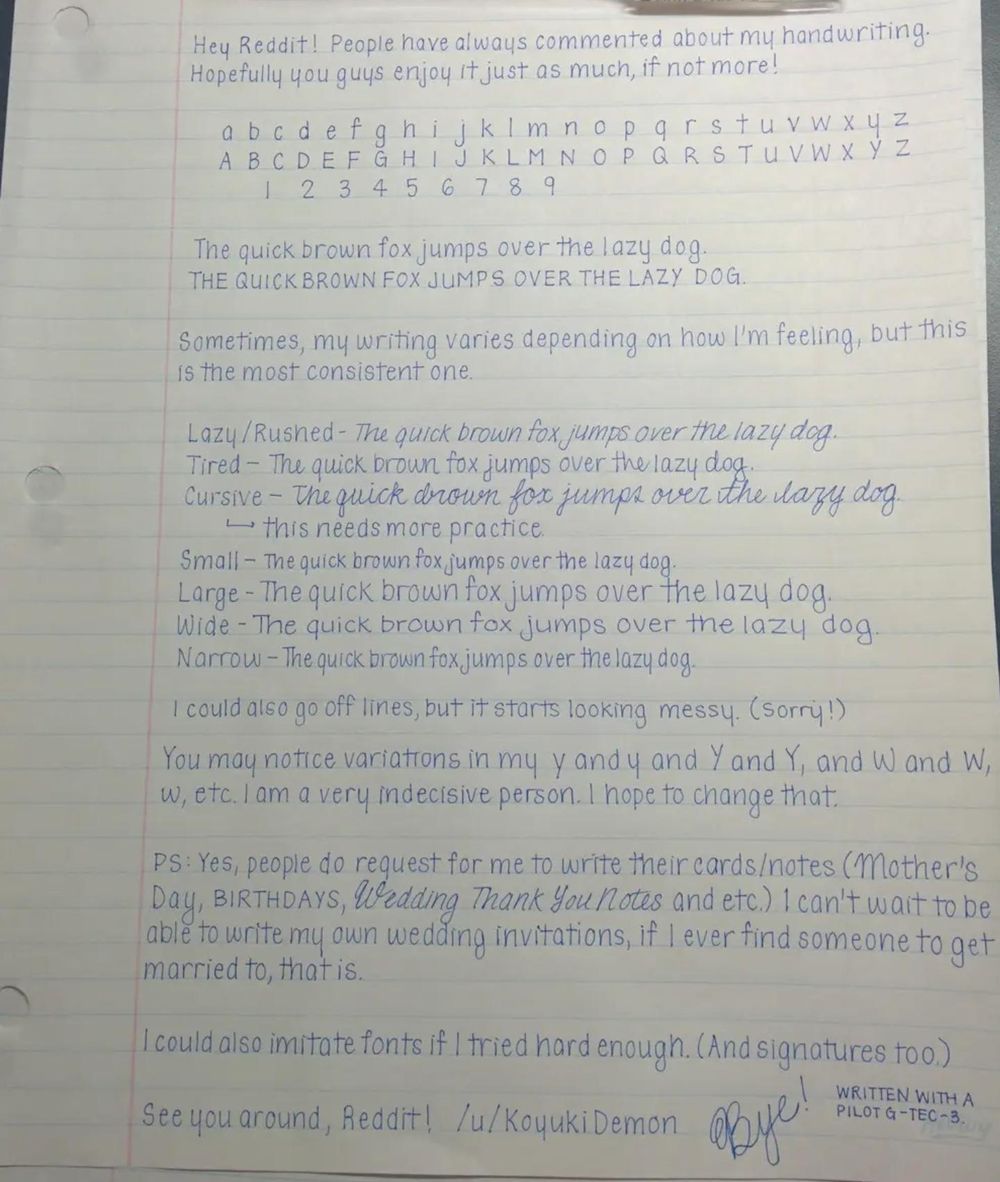 Hey Reddit! People have always commented about my handwriting.
Hopefully you guys enjoy it just as much, if not more!
a b c d e f g h i j k l m n o p q r s t u v w x y z
A B C D E F G H I J K L M N O P Q R S T U V W X Y Z
1 2 3 4 5 6 7 8 9
The quick brown fox jumps over the lazy dog.
THE QUICK BROWN FOX JUMPS OVER THE LAZY DOG.
Sometimes, my writing varies depending on how I'm feeling, but this
is the most consistent one.
Lazy/Rushed - The quick brown fox jumps over the lazy dog.
Tired - The quick brown fox jumps over the lazy dog.
Cursive - The quick brown fox jumps over the lazy dog.
↳ this needs more practice.
Small - The quick brown fox jumps over the lazy dog.
Large - The quick brown fox jumps over the lazy dog.
Wide - The quick brown fox jumps over the lazy dog.
Narrow - The quick brown fox jumps over the lazy dog.
I could also go off lines, but it starts looking messy. (Sorry!)
You may notice variations in my y and y and Y and Y, and W and W,
w, etc. I am a very indecisive person. I hope to change that.
PS: Yes, people do request for me to write their cards/notes (Mother's
Day, BIRTHDAYS, Wedding Thank You Notes and etc.) I can't wait to be
able to write my own wedding invitations, if I ever find someone to get
married to, that is.
I could also imitate fonts if I tried hard enough. (And signatures too.)
See you around, Reddit! /u/Koyuki Demon Bye!
WRITTEN WITH A
PILOT G-TEC-3.